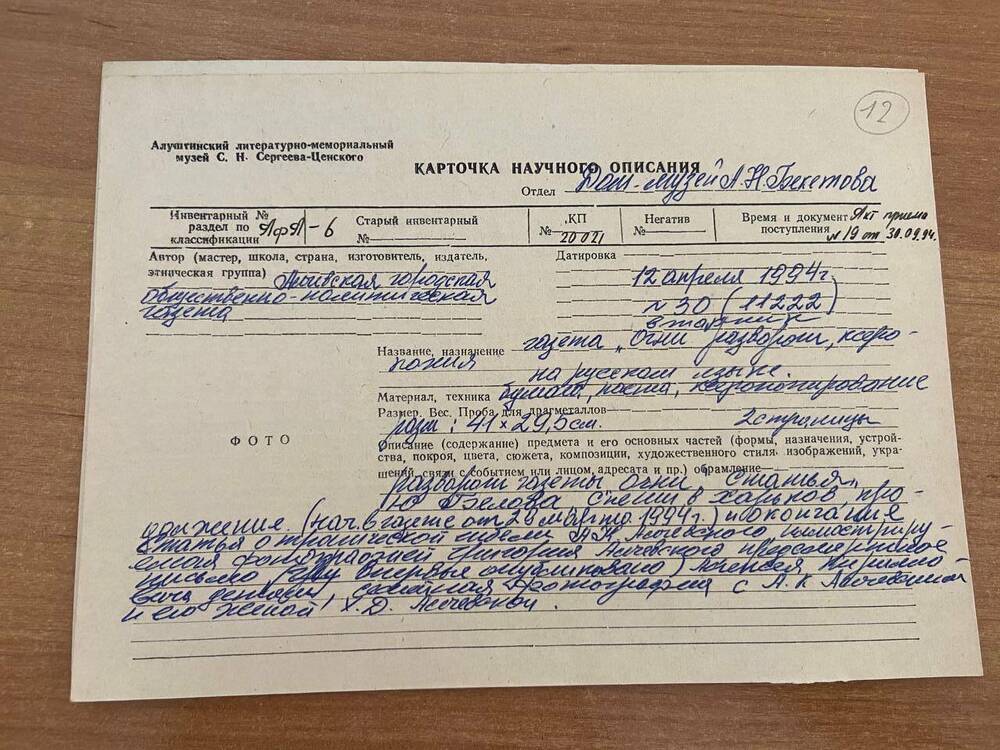 12
Алуштинский литературно-мемориальный
музей С. Н. Сергеева-Ценского
КАРТОЧКА НАУЧНОГО ОПИСАНИЯ
Отдел Дом-музей А.Н. Бекетова
Инвентарный №
раздел по
классификации АфЛ-6
Старый инвентарный
№
КП
№ 20021
Негатив
№
Время и документ Акт приема
поступления №19 от 30.09.94.
Автор (мастер, школа, страна, изготовитель, издатель,
этническая группа) городская
общественно-политическая
газета
Датировка
12 апреля 1994г.
№ 30 (11222)
вторник
Название, назначение газета „Огни разворот, ксеро-
копия
на русском языке.
Материал, техника бумага, паста, ксерокопирование
Размер. Вес. Проба для драгметаллов
разм: 41×29,5 см. 2 страницы
ФОТО
Описание (содержание) предмета и его основных частей (формы, назначения, устрой-
ства, покроя, цвета, сюжета, композиции, художественного стиля изображений, укра-
шений, связи с событием или лицом, адресата и пр.) обрамление
разворот газеты Огни". Статья
Ю Белова „Спеши в Харьков, про-
должение. (нач. в газете от 29 марта 1994г.) и окончание
Статья о трагической гибели А.К. Алчевского, иллюстрируе-
емая фотографией Григория Алчевского предсмертное
письмо впервые опубликовано) Алексея Кирилло-
вича фотография с А. К Алчевским
и его женой Х.Д. Алчевской.